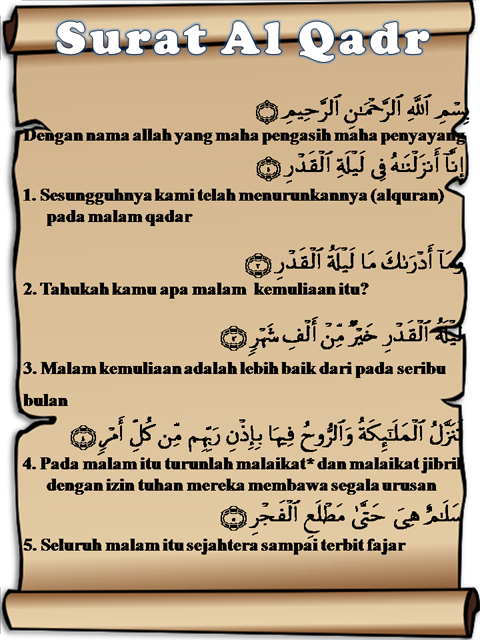 Surat Al Qadr
بِسْمِ ٱللَّهِ ٱلرَّحْمَٰنِ ٱلرَّحِيمِ
Dengan nama allah yang maha pengasih maha penyayang
إِنَّآ أَنزَلْنَٰهُ فِى لَيْلَةِ ٱلْقَدْرِ ۝١
1. Sesungguhnya kami telah menurunkannya (alquran)
pada malam qadar
وَمَآ أَدْرَىٰكَ مَا لَيْلَةُ ٱلْقَدْرِ ۝٢
2. Tahukah kamu apa malam kemuliaan itu?
لَيْلَةُ ٱلْقَدْرِ خَيْرٌ مِّنْ أَلْفِ شَهْرٍ ۝٣
3. Malam kemuliaan adalah lebih baik dari pada seribu
bulan
تَنَزَّلُ ٱلْمَلَٰٓئِكَةُ وَٱلرُّوحُ فِيهَا بِإِذْنِ رَبِّهِم مِّن كُلِّ أَمْرٍ ۝٤
4. Pada malam itu turunlah malaikat* dan malaikat jibril
dengan izin tuhan mereka membawa segala urusan
سَلَٰمٌ هِىَ حَتَّىٰ مَطْلَعِ ٱلْفَجْرِ ۝٥
5. Seluruh malam itu sejahtera sampai terbit fajar